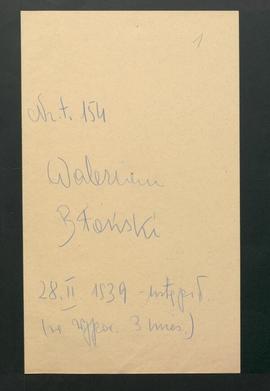 1
Nr. t. 154
Walerian
Błoński
28.II 1939 - ustąpił.
(za wypow. 3 mies.)